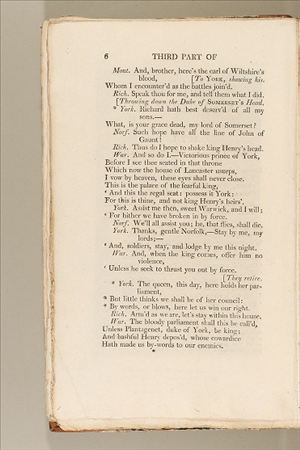 6 THIRD PART OF
Mont. And, brother, here's the earl of Wiltshire's
blood, [To YORK, showing his.
Whom I encounter'd as the battles join'd.
Rich. Speak thou for me, and tell them what I did.
[Throwing down the Duke of SOMERSET's Head.
* York. Richard hath best deserv'd of all my
sons.—
What, is your grace dead, my lord of Somerset?
Norf. Such hope have all the line of John of
Gaunt!
Rich. Thus do I hope to shake king Henry's head.
War. And so do I.—Victorious prince of York,
Before I see thee seated in that throne
Which now the house of Lancaster usurps,
I vow by heaven, these eyes shall never close.
This is the palace of the fearful king,
* And this the regal seat: possess it York:
For this is thine, and not king Henry's heirs'.
York. Assist me then, sweet Warwick, and I will;
* For hither we have broken in by force.
Norf. We'll all assist you; he, that flies, shall die.
York. Thanks, gentle Norfolk,—Stay by me, my
lords;—
* And, soldiers, stay, and lodge by me this night.
War. And, when the king comes, offer him no
violence,
* Unless he seek to thrust you out by force.
[They retire.
* York. The queen, this day, here holds her par-
liament,
* But little thinks we shall be of her council:
* By words, or blows, here let us win our right.
Rich. Arm'd as we are, let's stay within this house.
War. The bloody parliament shall this be call'd,
Unless Plantagenet, duke of York, be king;
And bashful Henry depos'd, whose cowardice
Hath made us by-words to our enemies.